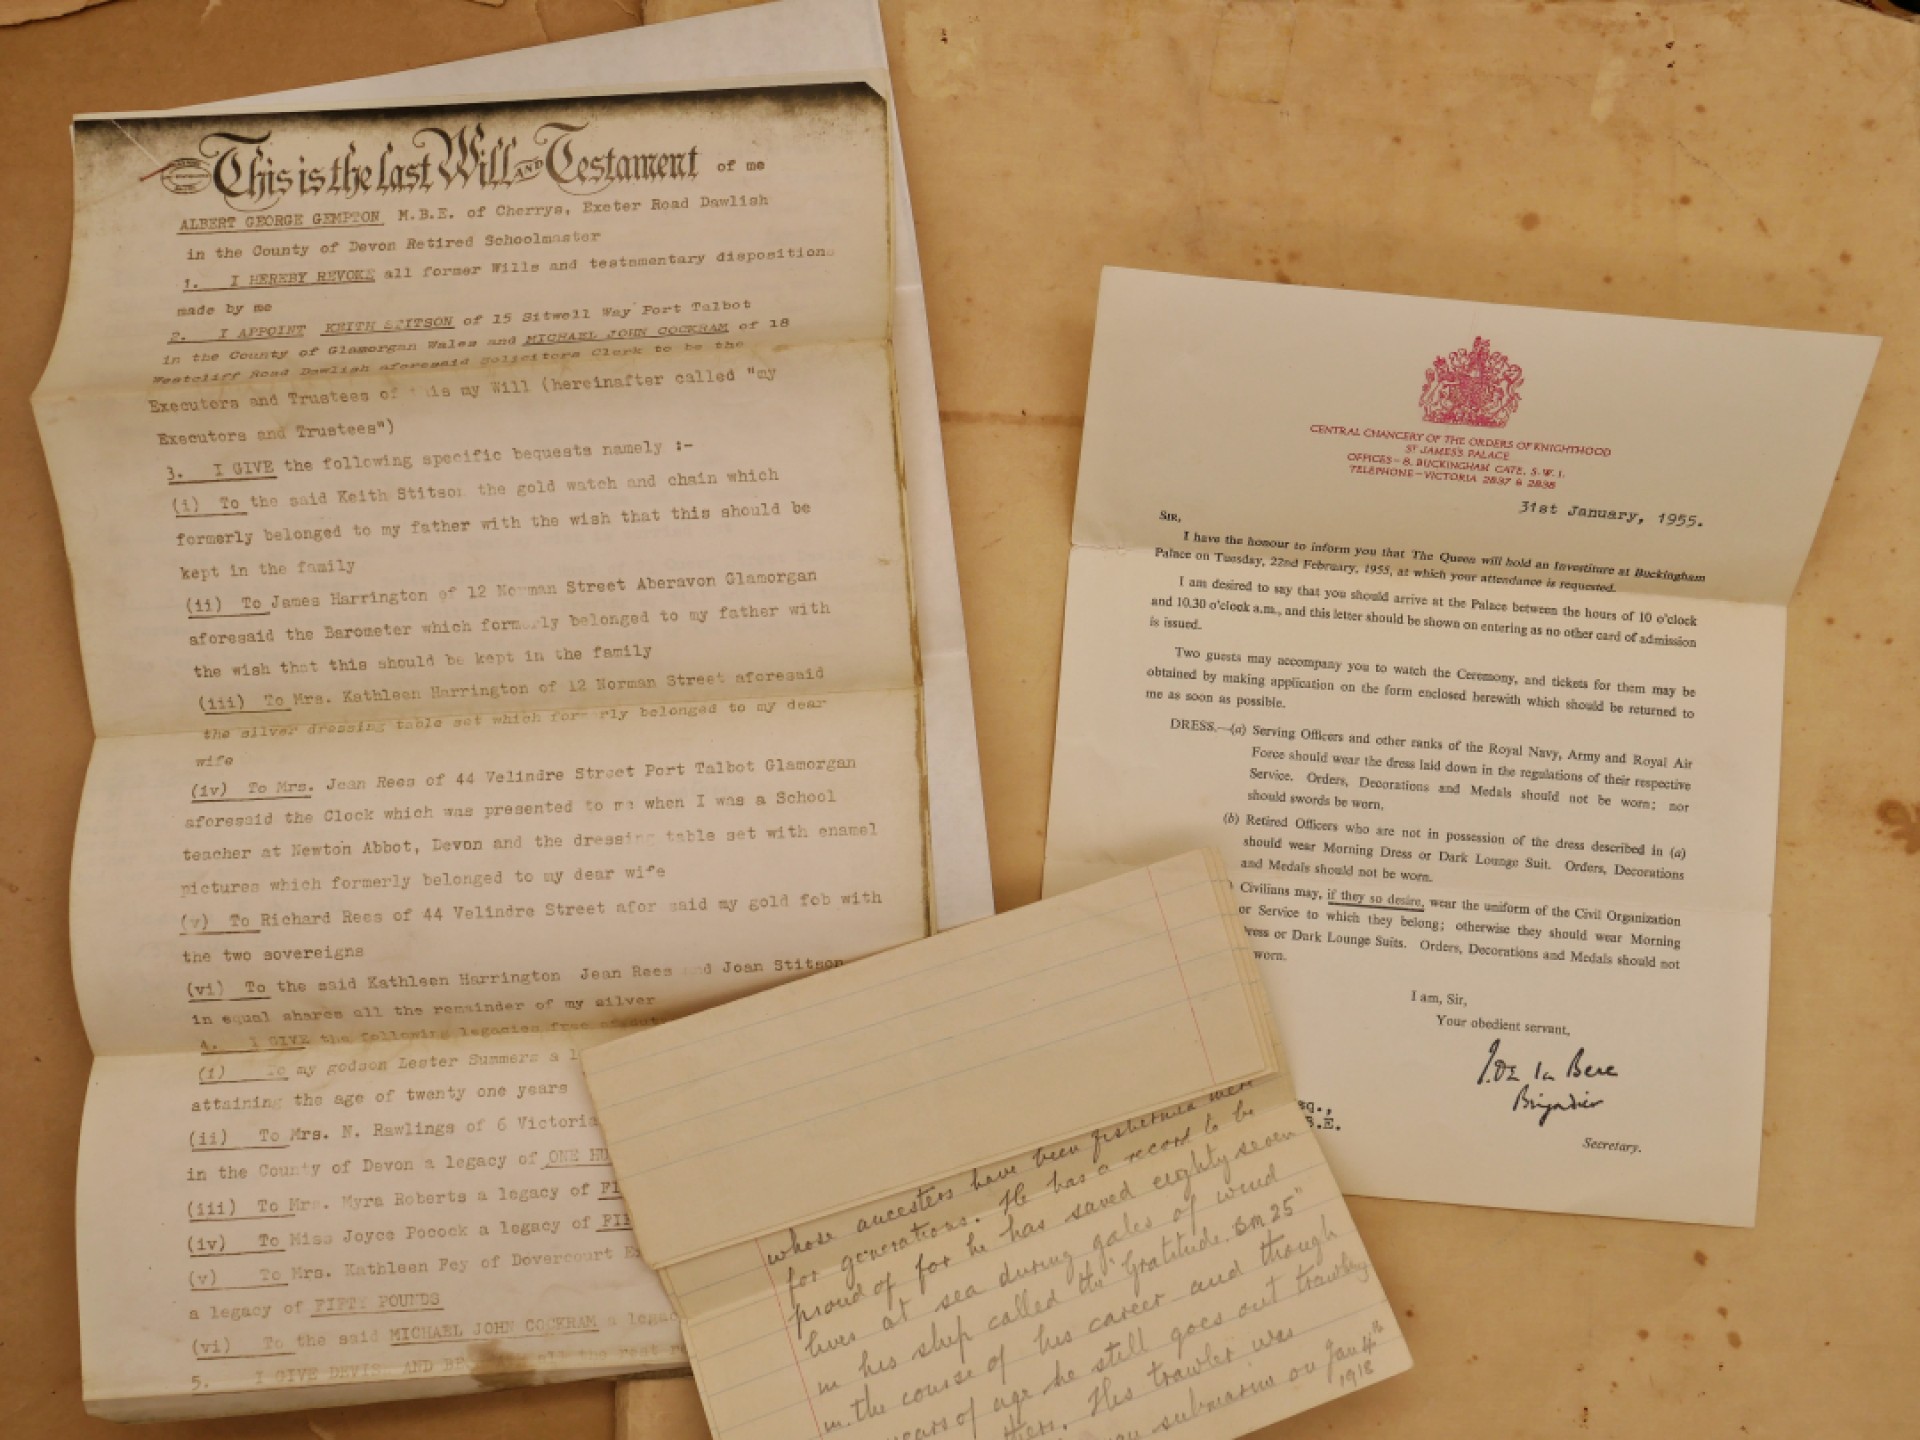 This is the last Will AND Testament of me
ALBERT GEORGE GEMPTON M.B.E. of Cherrys, Exeter Road Dawlish
in the County of Devon Retired Schoolmaster
1. I HEREBY REVOKE all former Wills and testamentary dispositions
made by me
2. I APPOINT KEITH STITSON of 15 Sitwell Way Port Talbot
in the County of Glamorgan Wales and MICHAEL JOHN COCKRAM of 18
Westcliff Road Dawlish aforesaid Solicitors Clerk to be the
Executors and Trustees of this my Will (hereinafter called "my
Executors and Trustees")
3. I GIVE the following specific bequests namely :-
(i) To the said Keith Stitson the gold watch and chain which
formerly belonged to my father with the wish that this should be
kept in the family
(ii) To James Harrington of 12 Norman Street Aberavon Glamorgan
aforesaid the Barometer which formerly belonged to my father with
the wish that this should be kept in the family
(iii) To Mrs. Kathleen Harrington of 12 Norman Street aforesaid
the silver dressing table set which formerly belonged to my dear
wife
(iv) To Mrs. Jean Rees of 44 Velindre Street Port Talbot Glamorgan
aforesaid the Clock which was presented to me when I was a School
teacher at Newton Abbot, Devon and the dressing table set with enamel
pictures which formerly belonged to my dear wife
(v) To Richard Rees of 44 Velindre Street aforesaid my gold fob with
the two sovereigns
(vi) To the said Kathleen Harrington Jean Rees and Joan Stitson
in equal shares all the remainder of my silver
4. I GIVE the following legacies free of
(i) To my godson Lester Summers a
attaining the age of twenty one years
(ii) To Mrs. N. Rawlings of 6 Victoria
in the County of Devon a legacy of ONE HU
(iii) To Mrs. Myra Roberts a legacy of FI
(iv) To Miss Joyce Pocock a legacy of FIF
(v) To Mrs. Kathleen Fey of Dovercourt
a legacy of FIFTY POUNDS
(vi) To the said MICHAEL JOHN COCKRAM a legac
5. I GIVE DEVISE AND BE all the rest
CENTRAL CHANCERY OF THE ORDERS OF KNIGHTHOOD
ST JAMES'S PALACE
OFFICES – 8, BUCKINGHAM GATE, S.W.1.
TELEPHONE – VICTORIA 2837 & 2838
31st January, 1955.
SIR,
I have the honour to inform you that The Queen will hold an Investiture at Buckingham
Palace on Tuesday, 22nd February, 1955, at which your attendance is requested.
I am desired to say that you should arrive at the Palace between the hours of 10 o'clock
and 10.30 o'clock a.m., and this letter should be shown on entering as no other card of admission
is issued.
Two guests may accompany you to watch the Ceremony, and tickets for them may be
obtained by making application on the form enclosed herewith which should be returned to
me as soon as possible.
DRESS.—(a) Serving Officers and other ranks of the Royal Navy, Army and Royal Air
Force should wear the dress laid down in the regulations of their respective
Service. Orders, Decorations and Medals should not be worn; nor
should swords be worn.
(b) Retired Officers who are not in possession of the dress described in (a)
should wear Morning Dress or Dark Lounge Suit. Orders, Decorations
and Medals should not be worn.
) Civilians may, if they so desire, wear the uniform of the Civil Organization
or Service to which they belong; otherwise they should wear Morning
Dress or Dark Lounge Suits. Orders, Decorations and Medals should not
worn.
I am, Sir,
Your obedient servant,
I. De la Bere
Brigadier
Secretary.
sq.,
B.E.
whose ancesters have been fishermen were
for generations. He has a record to be
proud of for he has saved eighty seven
lives at sea during gales of wind
in his ship called the "Gratitude. Bm 25"
in the course of his career and though
years of age he still goes out trawling
His trawler was
submarine on Jan 4th
1918